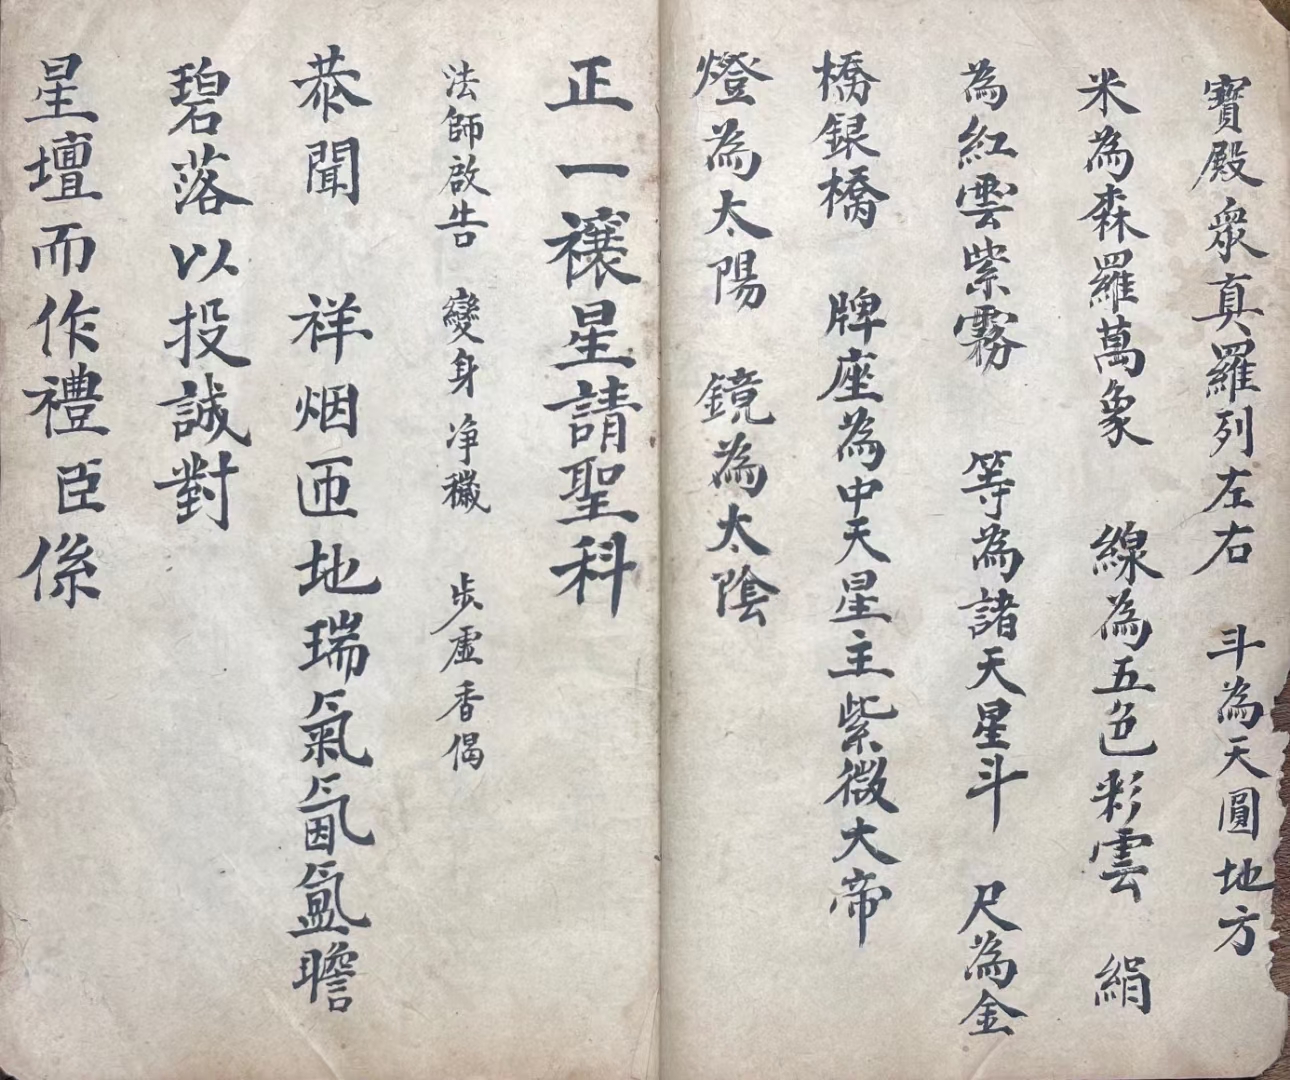 寶殿衆真羅列左右　斗為天圓地方
米為森羅萬象　線為五色彩雲　絹
為紅雲紫霧　等為諸天星斗　尺為金
橋銀橋　牌座為中天星主紫微大帝
燈為太陽　鏡為太陰
正一禳星請聖科
法師啟告　變身净穢　步虛香偈
恭聞　祥烟匝地瑞氣氤氳瞻
碧落以投誠對
星壇而作禮臣係